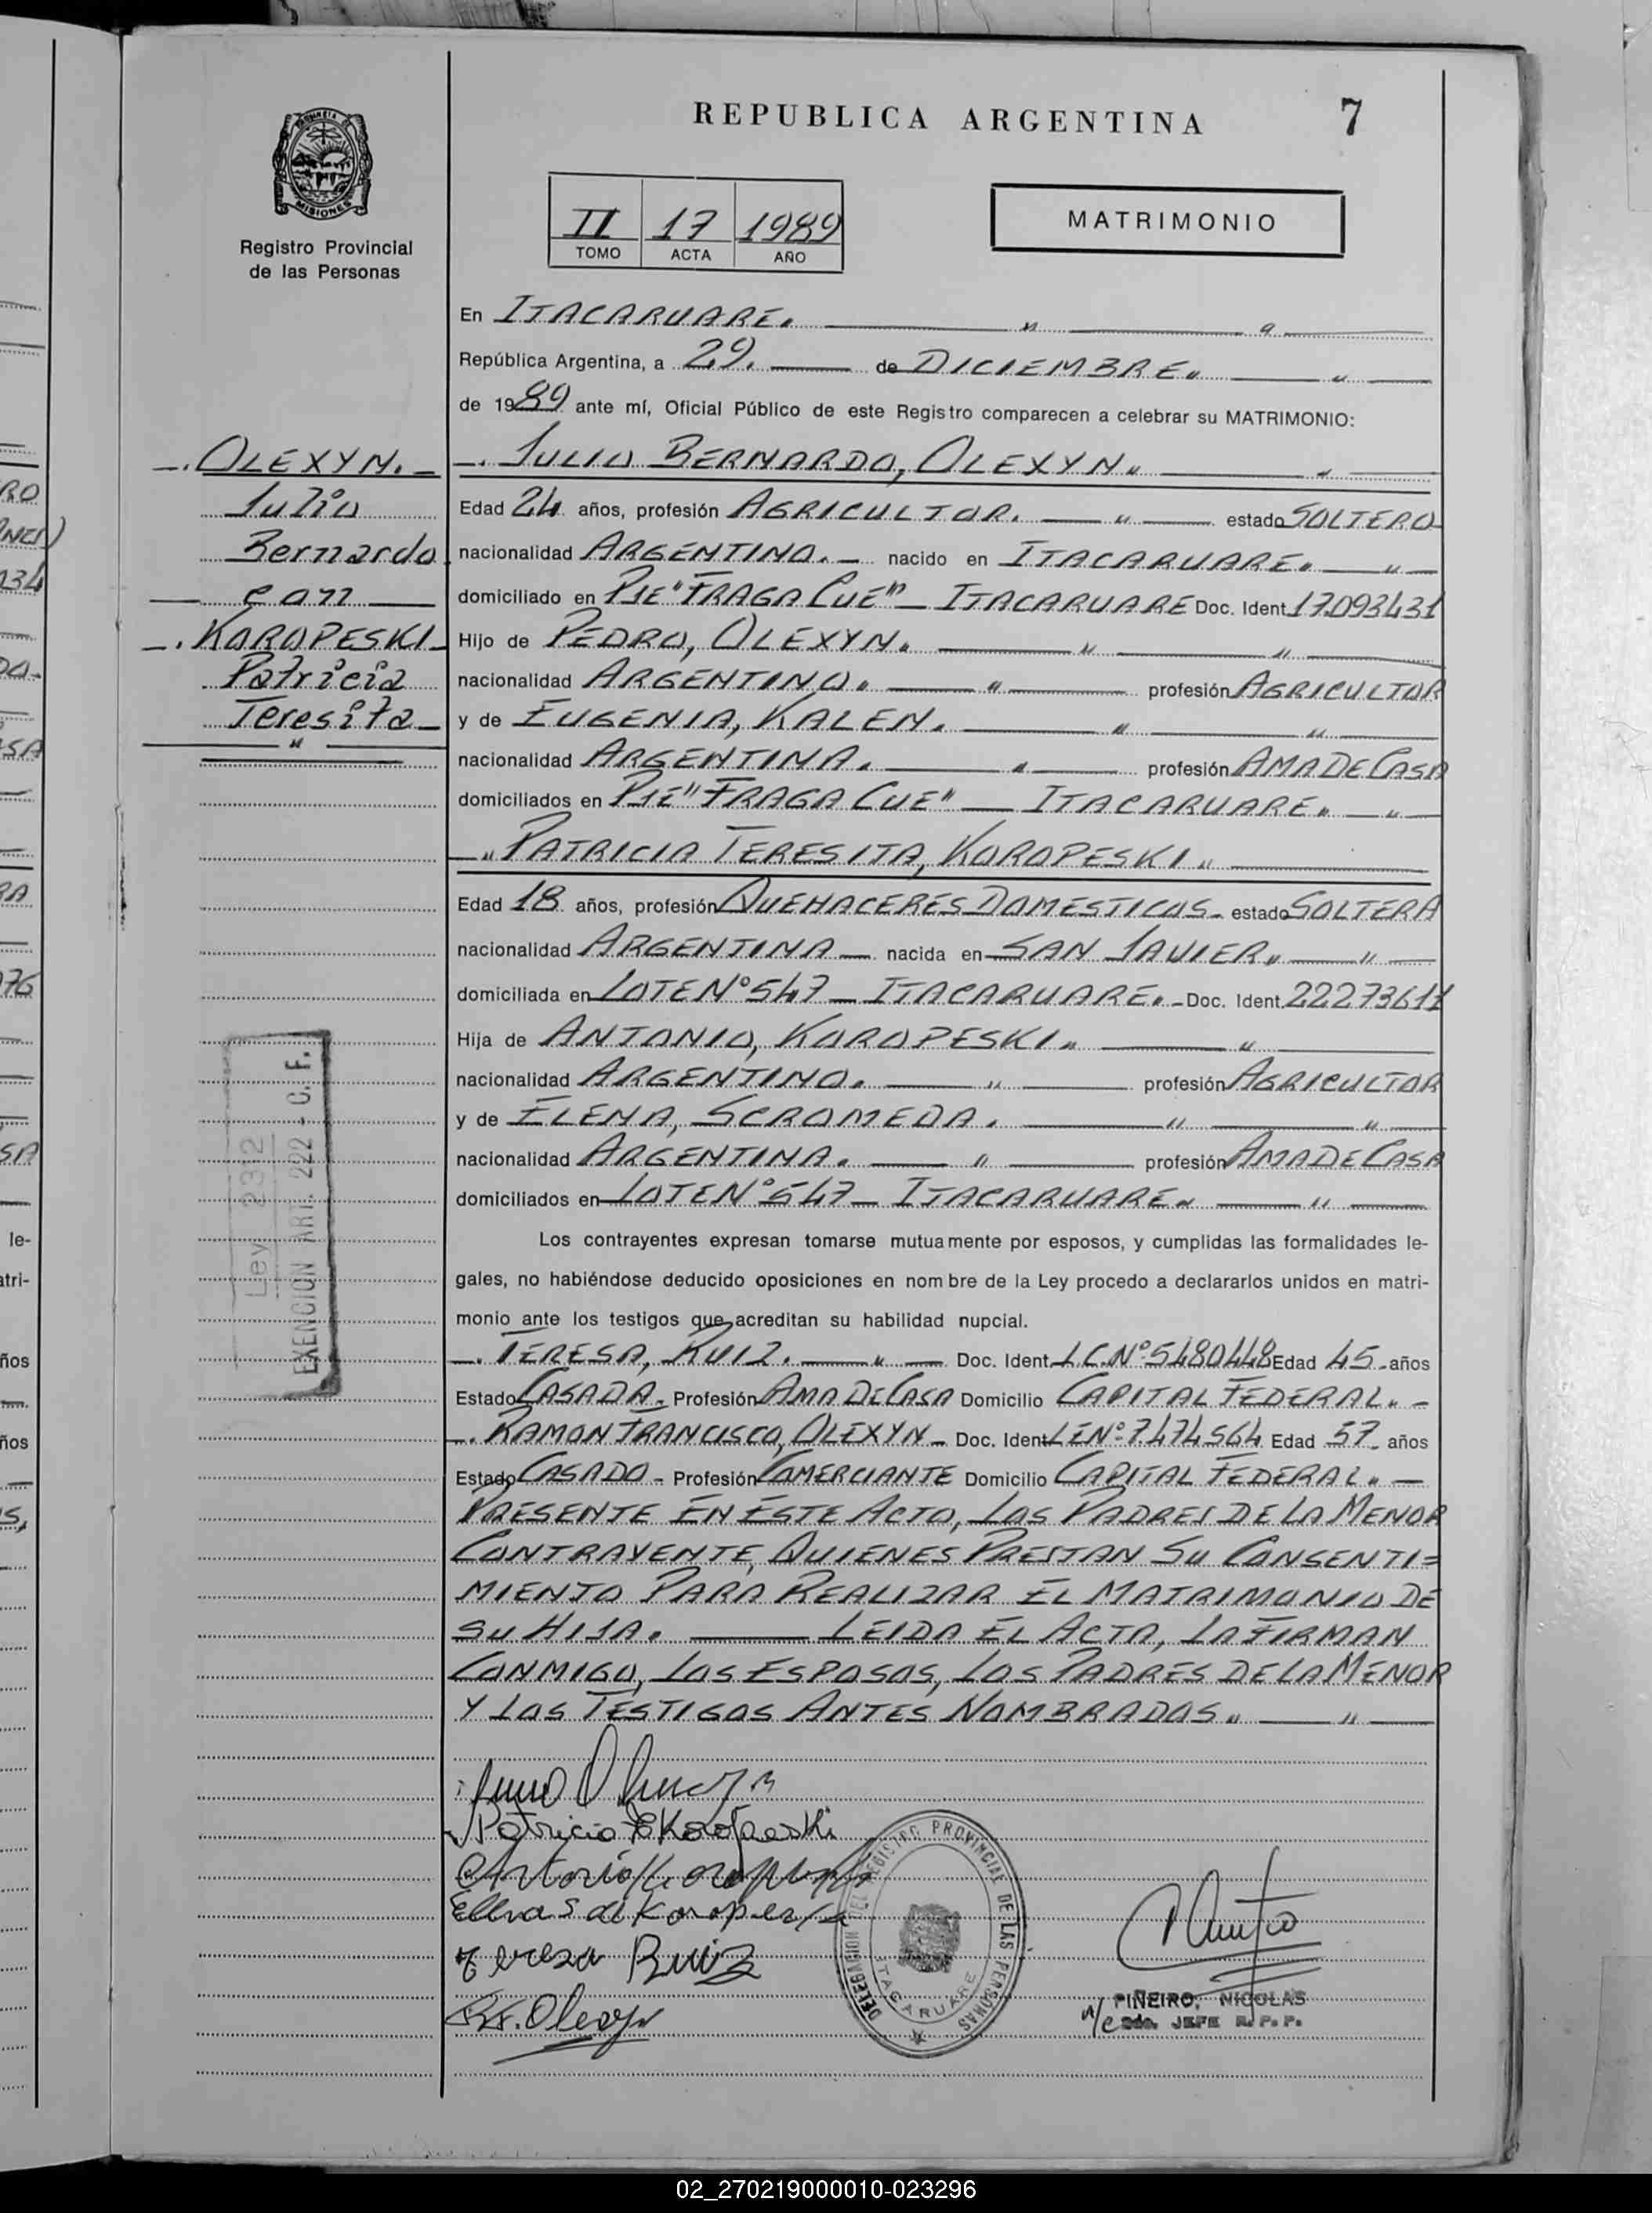 REPUBLICA ARGENTINA
7
MISIONES
Registro Provincial
de las Personas
II 17 1989
TOMO ACTA AÑO
MATRIMONIO
En ITACARUARE.
República Argentina, a 29. de DICIEMBRE
de 1989 ante mí, Oficial Público de este Registro comparecen a celebrar su MATRIMONIO:
OLEXYN.
Julio
Bernardo
con
KOROPESKI
Patricia
Teresita
JULIO BERNARDO, OLEXYN
Edad 24 años, profesión AGRICULTOR. estado SOLTERO
nacionalidad ARGENTINO. nacido en ITACARUARE
domiciliado en PJE "FRAGA CUE" - ITACARUARE Doc. Ident 17.093.431
Hijo de PEDRO, OLEXYN.
nacionalidad ARGENTINO. profesión AGRICULTOR
y de EUGENIA, KALEN.
nacionalidad ARGENTINA. profesión AMA DE CASA
domiciliados en PJE "FRAGA CUE" - ITACARUARE
PATRICIA TERESITA, KOROPESKI
Edad 18 años, profesión QUEHACERES DOMESTICOS estado SOLTERA
nacionalidad ARGENTINA nacida en SAN JAVIER
domiciliada en LOTE Nº 547 - ITACARUARE. Doc. Ident. 22273611
Hija de ANTONIO, KOROPESKI
nacionalidad ARGENTINO. profesión AGRICULTOR
y de ELENA, SCROMEDA.
nacionalidad ARGENTINA. profesión AMA DE CASA
domiciliados en LOTE Nº 547 - ITACARUARE
Los contrayentes expresan tomarse mutuamente por esposos, y cumplidas las formalidades le-
gales, no habiéndose deducido oposiciones en nombre de la Ley procedo a declararlos unidos en matri-
monio ante los testigos que acreditan su habilidad nupcial.
TERESA, RUIZ. Doc. Ident L.C. Nº 5480448 Edad 45 años
Estado CASADA - Profesión AMA DE CASA Domicilio CAPITAL FEDERAL
RAMON FRANCISCO, OLEXYN - Doc. Ident L E Nº 7.474564 Edad 57 años
Estado CASADO - Profesión COMERCIANTE Domicilio CAPITAL FEDERAL
PRESENTE EN ESTE ACTO, LOS PADRES DE LA MENOR
CONTRAYENTE, QUIENES PRESTAN SU CONSENTI=
MIENTO PARA REALIZAR EL MATRIMONIO DE
SU HIJA. LEIDA EL ACTA, LA FIRMAN
CONMIGO, LOS ESPOSOS, LOS PADRES DE LA MENOR
Y LOS TESTIGOS ANTES NOMBRADOS
Ley 232
EXENCION ART. 222 - C. F.
Patricia T Koropeski
Antonio Koropeski
Elena S de Koropeski
Teresa Ruiz
R.F. Olexyn
DELEGACION DEL REGISTRO PROVINCIAL DE LAS PERSONAS
ITACARUARE
PIÑEIRO, NICOLAS
a/c Sdo. JEFE R. P. P.
02_270219000010-023296